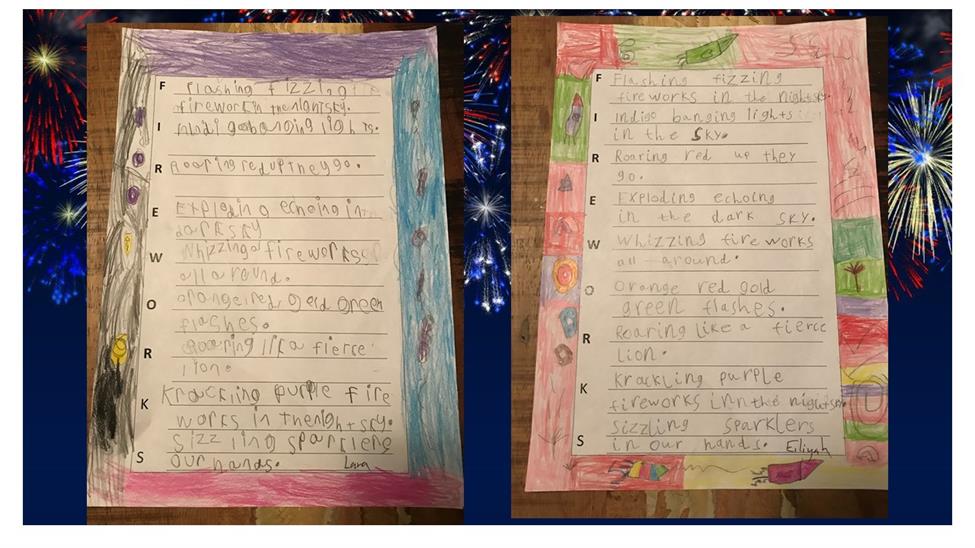 F Flashing fizzing
fireworks in the nightsky.
I
lights.
R Roaring red up they go.
E Exploding echoing in
darksky
W Whizzing fireworks
all around.
O orange red gold green
flashes.
R Roaring lik a fierce
lion.
K Krackling purple fire
works in the nightsky.
S sizzling
our hands. Lara
F Flashing fizzing
fireworks in the nightsky.
I Indigo banging lights
in the sky.
R Roaring red up they
go.
E Exploding echoing
in the dark sky.
W Whizzing fireworks
all around.
O Orange red gold
green flashes.
R Roaring like a fierce
lion.
K Krackling purple
fireworks inn the nightsky.
S sizzling sparklers
in our hands. Eiliyah